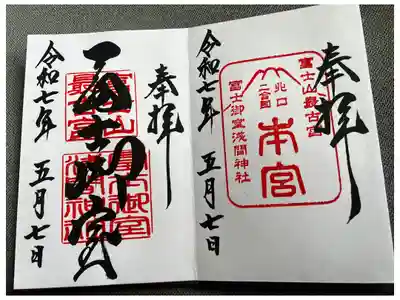 奉拝
富士山最古宮
北口
二合目
本宮
富士御室浅間神社
令和七年 五月七日
奉拝
冨士御室
令和七年 五月七日